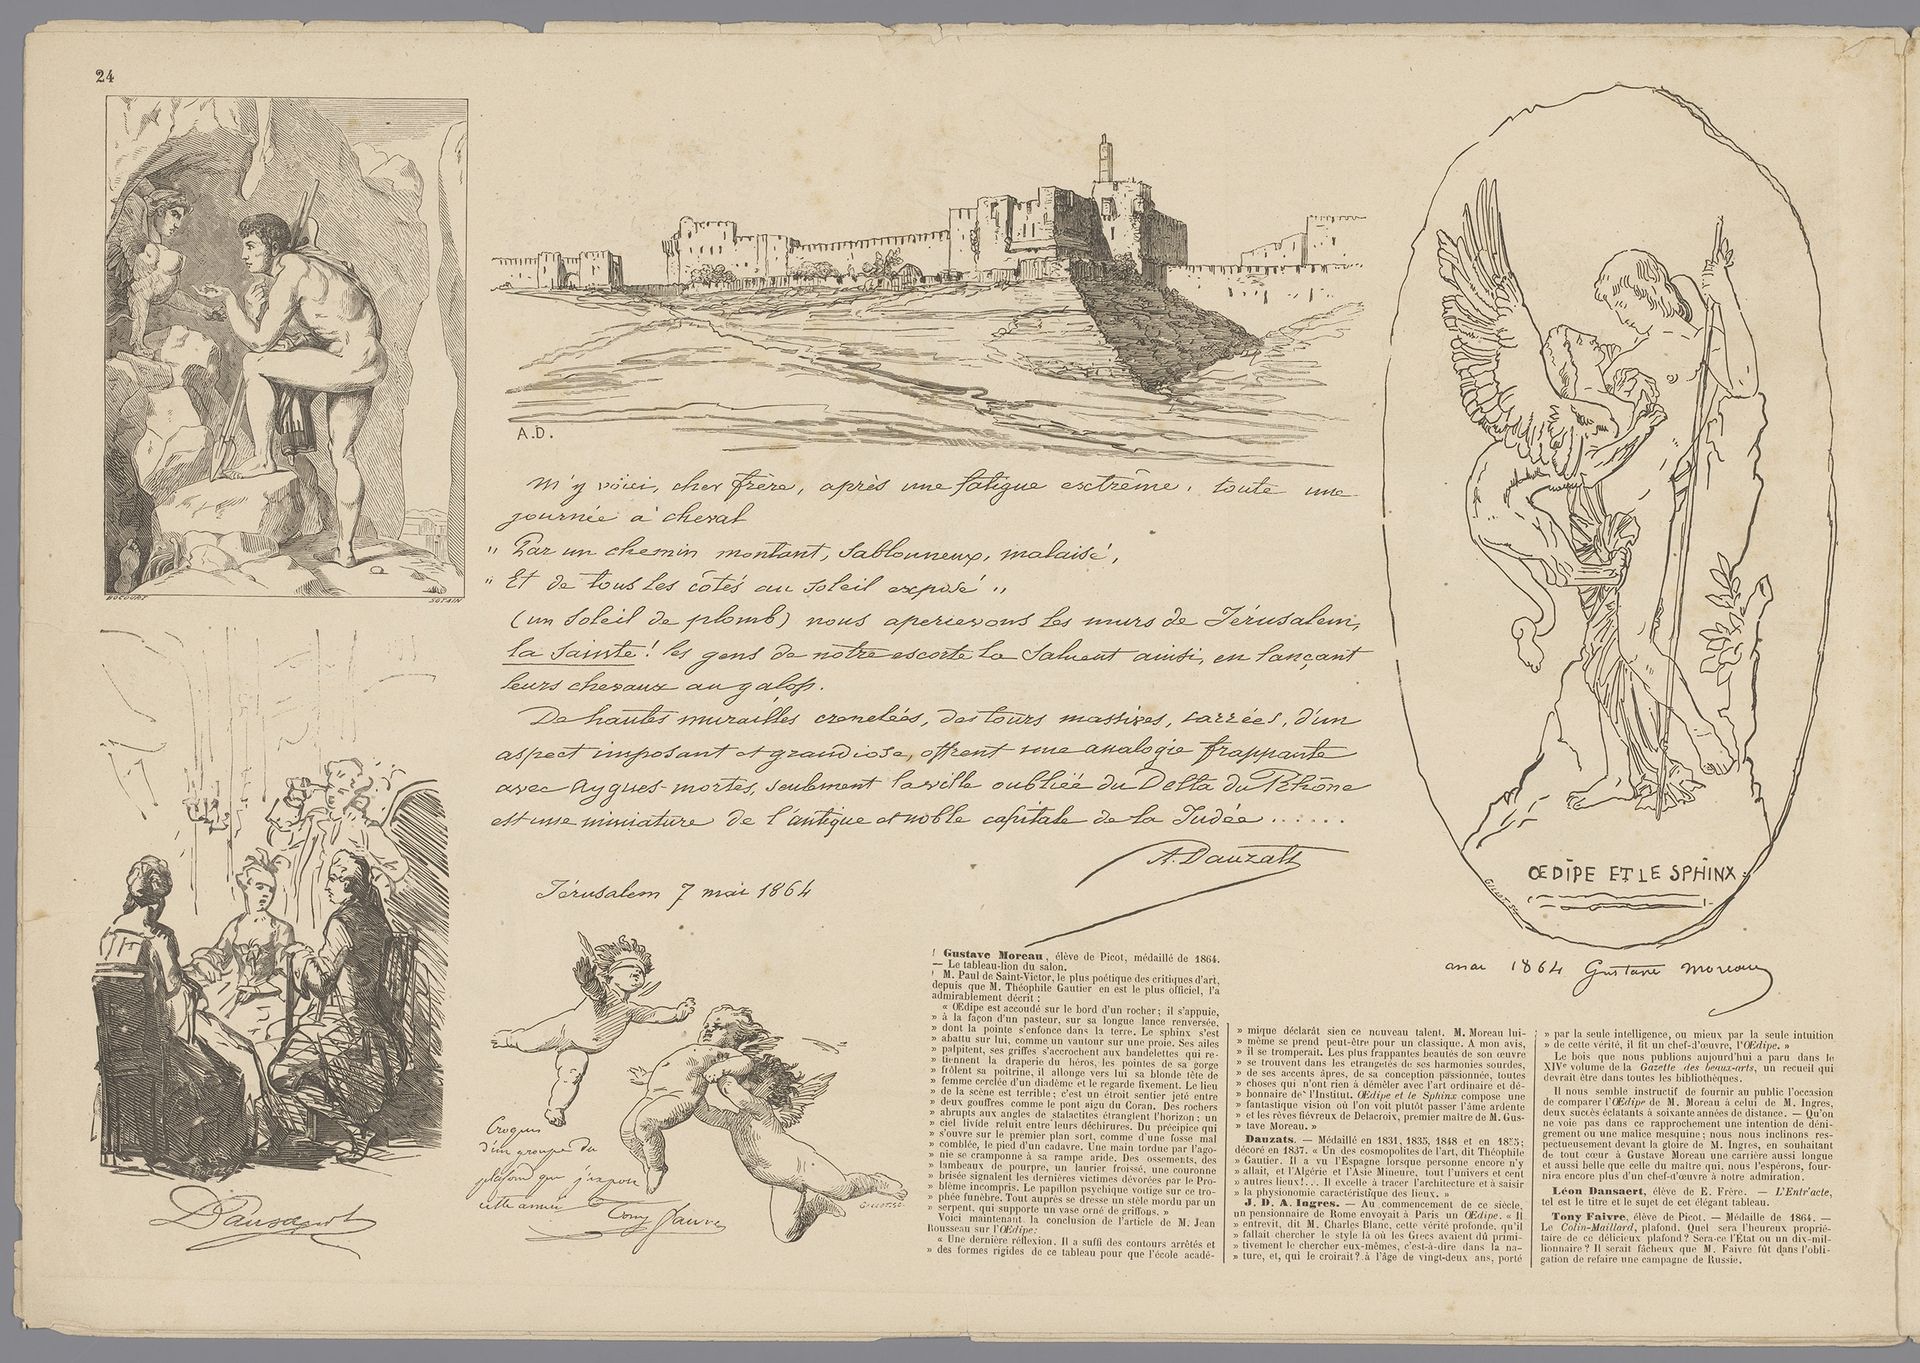 24
BOCOURT
SOTAIN
A.D.
M'y voici, cher frère, après une fatigue extrême, toute une
journée à cheval
" Par un chemin montant, sablonneux, malaisé,
" Et de tous les côtés au soleil exposé "
(un soleil de plomb) nous apercevons les murs de Jérusalem,
la sainte! les gens de notre escorte la saluent ainsi, en lançant
leurs chevaux au galop.
De hautes murailles crenelées, des tours massives, carrées, d'un
aspect imposant et grandiose, offrent une analogie frappante
avec Aygues-mortes, seulement la ville oubliée du Delta du Rhône
est une miniature de l'antique et noble capitale de la Judée......
A. Dauzats
Jérusalem 7 mai 1864
ŒDIPE ET LE SPHINX
GILLOT SC
mai 1864 Gustave Moreau
Croquis
d'un groupe du
plafond que j'expose
cette année
Tony Faivre
GILLOT SC.
Gustave Moreau, élève de Picot, médaillé de 1864.
— Le tableau-lion du salon.
M. Paul de Saint-Victor, le plus poétique des critiques d'art,
depuis que M. Théophile Gautier en est le plus officiel, l'a
admirablement décrit :
« Œdipe est accoudé sur le bord d'un rocher ; il s'appuie,
» à la façon d'un pasteur, sur sa longue lance renversée,
» dont la pointe s'enfonce dans la terre. Le sphinx s'est
» abattu sur lui, comme un vautour sur une proie. Ses ailes
» palpitent, ses griffes s'accrochent aux bandelettes qui re-
» tiennent la draperie du héros, les pointes de sa gorge
» frôlent sa poitrine, il allonge vers lui sa blonde tête de
» femme cerclée d'un diadème et le regarde fixement. Le lieu
» de la scène est terrible ; c'est un étroit sentier jeté entre
» deux gouffres comme le pont aigu du Coran. Des rochers
» abrupts aux angles de stalactites étranglent l'horizon ; un
» ciel livide reluit entre leurs déchirures. Du précipice qui
» s'ouvre sur le premier plan sort, comme d'une fosse mal
» comblée, le pied d'un cadavre. Une main tordue par l'ago-
» nie se cramponne à sa rampe aride. Des ossements, des
» lambeaux de pourpre, un laurier froissé, une couronne
» brisée signalent les dernières victimes dévorées par le Pro-
» blème incompris. Le papillon psychique voltige sur ce tro-
» phée funèbre. Tout auprès se dresse un stèle mordu par un
» serpent, qui supporte un vase orné de griffons. »
Voici maintenant la conclusion de l'article de M. Jean
Rousseau sur l'Œdipe :
« Une dernière réflexion. Il a suffi des contours arrêtés et
» des formes rigides de ce tableau pour que l'école acadé-
» mique déclarât sien ce nouveau talent. M. Moreau lui-
» même se prend peut-être pour un classique. A mon avis,
» il se tromperait. Les plus frappantes beautés de son œuvre
» se trouvent dans les étrangetés de ses harmonies sourdes,
» de ses accents âpres, de sa conception passionnée, toutes
» choses qui n'ont rien à démêler avec l'art ordinaire et dé-
» bonnaire de l'Institut. Œdipe et le Sphinx compose une
» fantastique vision où l'on voit plutôt passer l'âme ardente
» et les rêves fiévreux de Delacroix, premier maître de M. Gus-
» tave Moreau. »
Dauzats. — Médaillé en 1831, 1835, 1848 et en 1855 ;
décoré en 1837. « Un des cosmopolites de l'art, dit Théophile
» Gautier. Il a vu l'Espagne lorsque personne encore n'y
» allait, et l'Algérie et l'Asie Mineure, tout l'univers et cent
» autres lieux!... Il excelle à tracer l'architecture et à saisir
» la physionomie caractéristique des lieux. »
J. D. A. Ingres. — Au commencement de ce siècle,
un pensionnaire de Rome envoyait à Paris un Œdipe. « Il
» entrevit, dit M. Charles Blanc, cette vérité profonde, qu'il
» fallait chercher le style là où les Grecs avaient dû primi-
» tivement le chercher eux-mêmes, c'est-à-dire dans la na-
» ture, et, qui le croirait? à l'âge de vingt-deux ans, porté
» par la seule intelligence, ou mieux par la seule intuition
» de cette vérité, il fit un chef-d'œuvre, l'Œdipe. »
Le bois que nous publions aujourd'hui a paru dans le
XIVe volume de la Gazette des beaux-arts, un recueil qui
devrait être dans toutes les bibliothèques.
Il nous semble instructif de fournir au public l'occasion
de comparer l'Œdipe de M. Moreau à celui de M. Ingres,
deux succès éclatants à soixante années de distance. — Qu'on
ne voie pas dans ce rapprochement une intention de déni-
grement ou une malice mesquine ; nous nous inclinons res-
pectueusement devant la gloire de M. Ingres, en souhaitant
de tout cœur à Gustave Moreau une carrière aussi longue
et aussi belle que celle du maître qui, nous l'espérons, four-
nira encore plus d'un chef-d'œuvre à notre admiration.
Léon Dansaert, élève de E. Frère. — L'Entr'acte,
tel est le titre et le sujet de cet élégant tableau.
Tony Faivre, élève de Picot. — Médaille de 1864. —
Le Colin-Maillard, plafond. Quel sera l'heureux proprié-
taire de ce délicieux plafond? Sera-ce l'État ou un dix-mil-
lionnaire? Il serait fâcheux que M. Faivre fût dans l'obli-
gation de refaire une campagne de Russie.
Dansaert